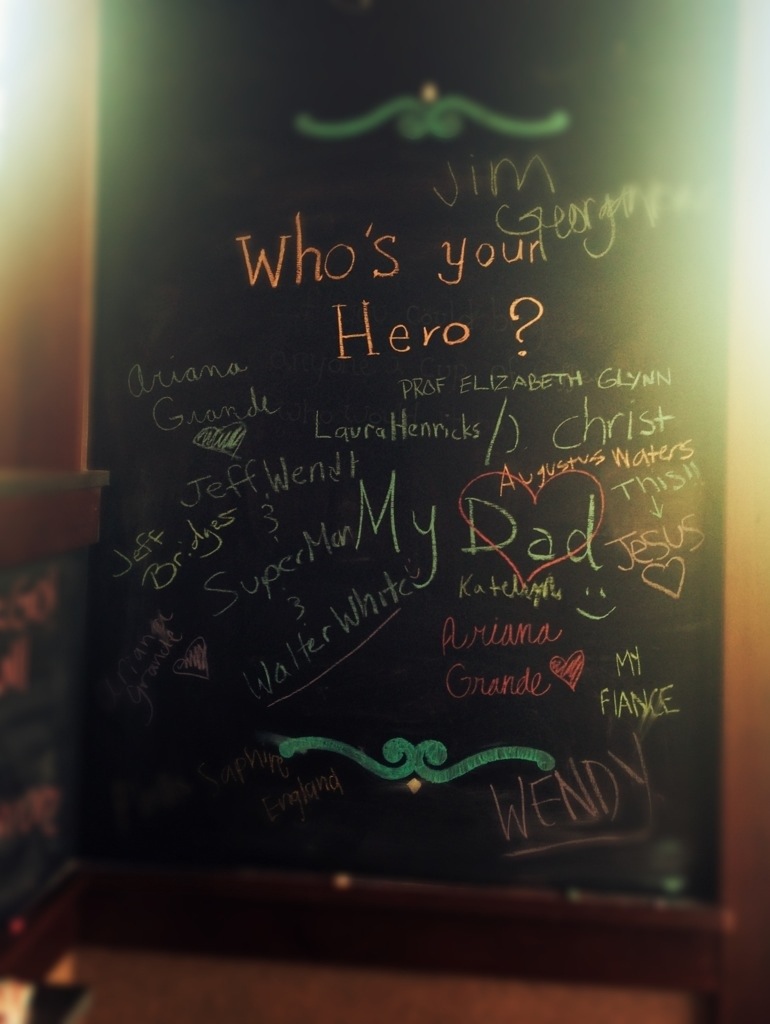 Jim
Who's your
Hero ?
Ariana
Grande
PROF ELIZABETH GLYNN
Laura Henricks
Christ
Augustus Waters
This!!
Jeff Wendt
My Dad
JESUS
Jeff
Bridges
&
SuperMan
&
Walter White
Ariana
Grande
Ariana
Grande
MY
FIANCE
Saphire
England
WENDY